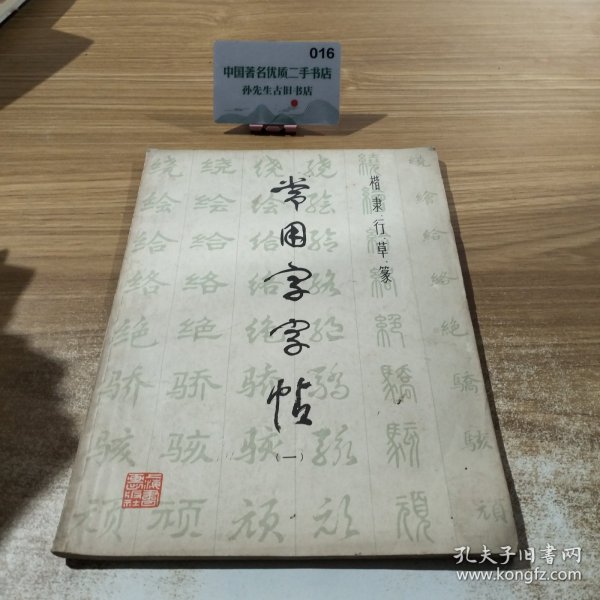 016
中国著名优质二手书店
孙先生古旧书店
楷隶行草篆
常用字字帖
(一)
绕 绕 绕 绕 繞 繞
绘 绘 绘 绘 繪 繪
给 给 给 给 給 給
络 络 络 络 絡 絡
绝 绝 绝 绝 絕 絕
骄 骄 骄 骄 驕 驕
骇 骇 骇 骇 駭 駭
顽 顽 顽 顽 頑 頑
上海书画社
孔夫子旧书网
www.kongfz.com